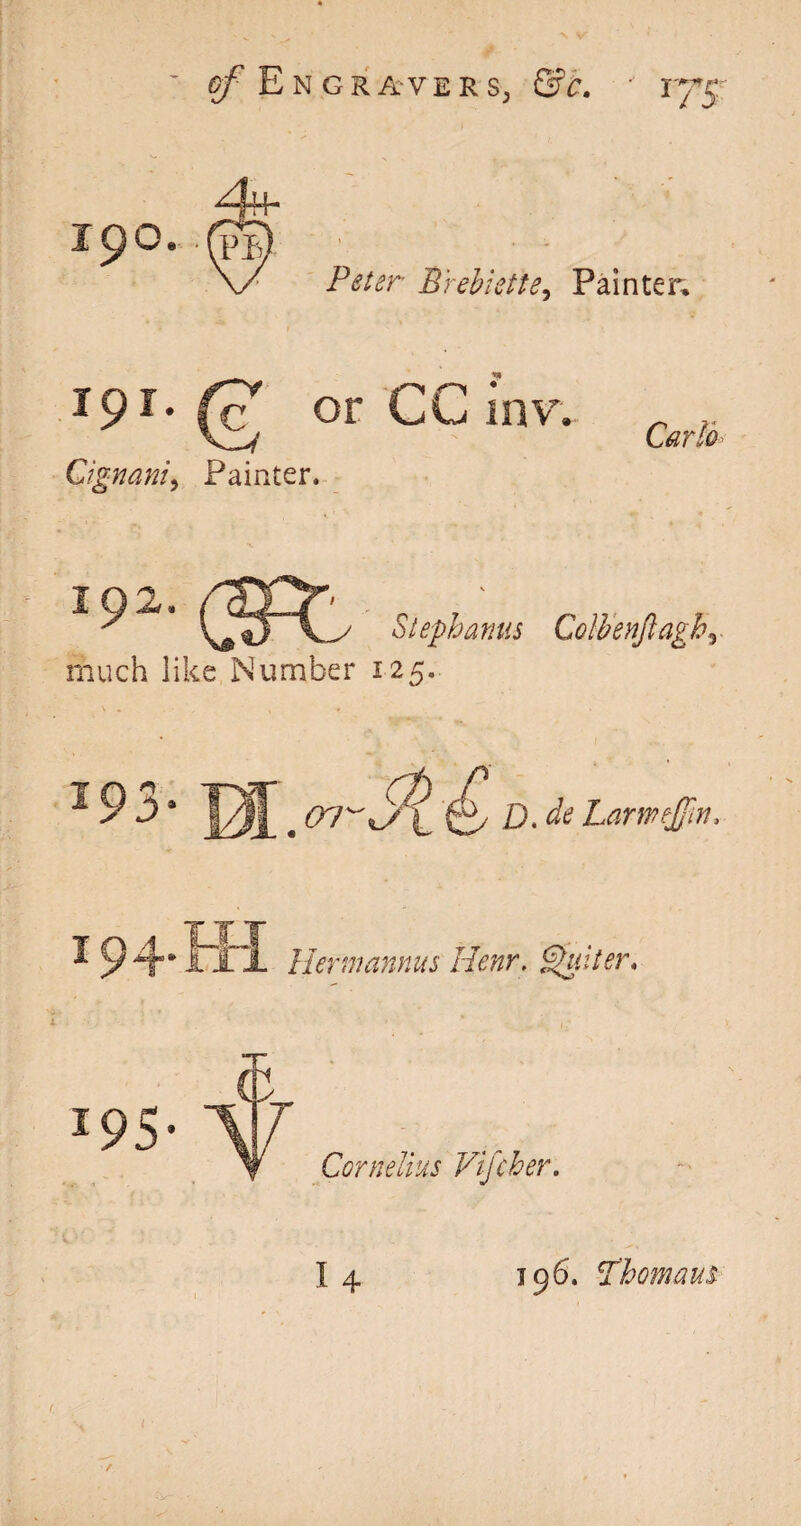 of ENGRAVERS, &c. 175
190. PB Peter Brebiette, Painter.
191. or CC inv. Carlo
Cignani, Painter.
192. Stephanus Colbenſtagh,
much like Number 125.
193. D. de Larmeſſin.
194. HH Hermannus Henr. Quiter.
195. Cornelius Viſcher.
I 4 196. Thomaus